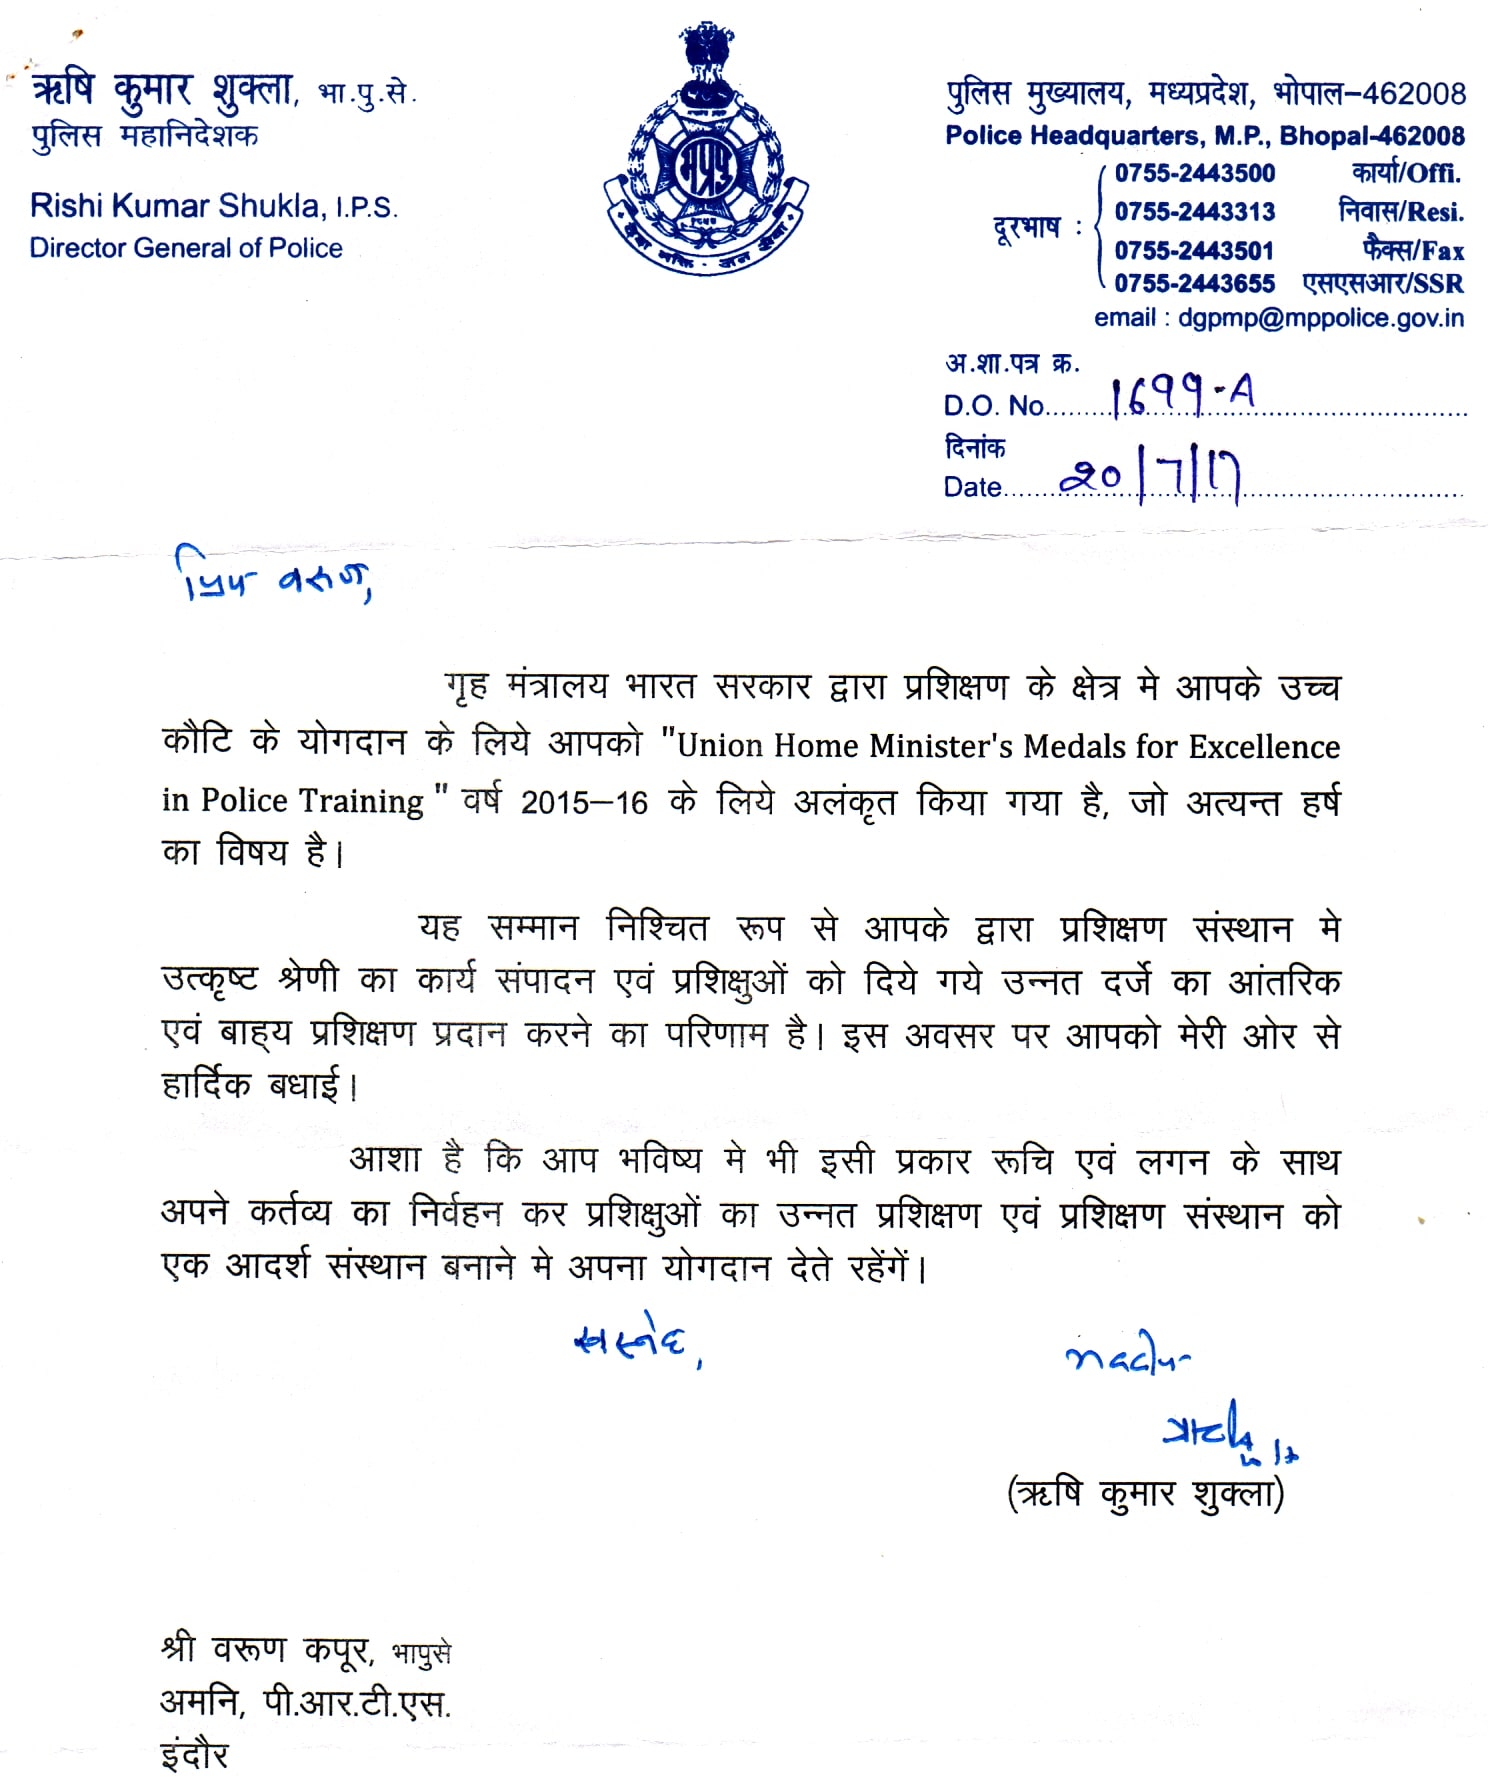 ऋषि कुमार शुक्ला, भा.पु.से.
पुलिस महानिदेशक
Rishi Kumar Shukla, I.P.S.
Director General of Police
मप्रपु
देश भक्ति - जन सेवा
पुलिस मुख्यालय, मध्यप्रदेश, भोपाल-462008
Police Headquarters, M.P., Bhopal-462008
दूरभाष :
0755-2443500 कार्या/Offi.
0755-2443313 निवास/Resi.
0755-2443501 फैक्स/Fax
0755-2443655 एसएसआर/SSR
email : dgpmp@mppolice.gov.in
अ.शा.पत्र क्र.
D.O. No. 1699-A
दिनांक
Date 20/7/17
प्रिय वरुण,
गृह मंत्रालय भारत सरकार द्वारा प्रशिक्षण के क्षेत्र मे आपके उच्च
कौटि के योगदान के लिये आपको "Union Home Minister's Medals for Excellence
in Police Training " वर्ष 2015–16 के लिये अलंकृत किया गया है, जो अत्यन्त हर्ष
का विषय है।
यह सम्मान निश्चित रूप से आपके द्वारा प्रशिक्षण संस्थान मे
उत्कृष्ट श्रेणी का कार्य संपादन एवं प्रशिक्षुओं को दिये गये उन्नत दर्जे का आंतरिक
एवं बाह्य प्रशिक्षण प्रदान करने का परिणाम है। इस अवसर पर आपको मेरी ओर से
हार्दिक बधाई।
आशा है कि आप भविष्य मे भी इसी प्रकार रूचि एवं लगन के साथ
अपने कर्तव्य का निर्वहन कर प्रशिक्षुओं का उन्नत प्रशिक्षण एवं प्रशिक्षण संस्थान को
एक आदर्श संस्थान बनाने मे अपना योगदान देते रहेंगें।
सस्नेह,
भवदीय
(ऋषि कुमार शुक्ला)
श्री वरूण कपूर, भापुसे
अमनि, पी.आर.टी.एस.
इंदौर